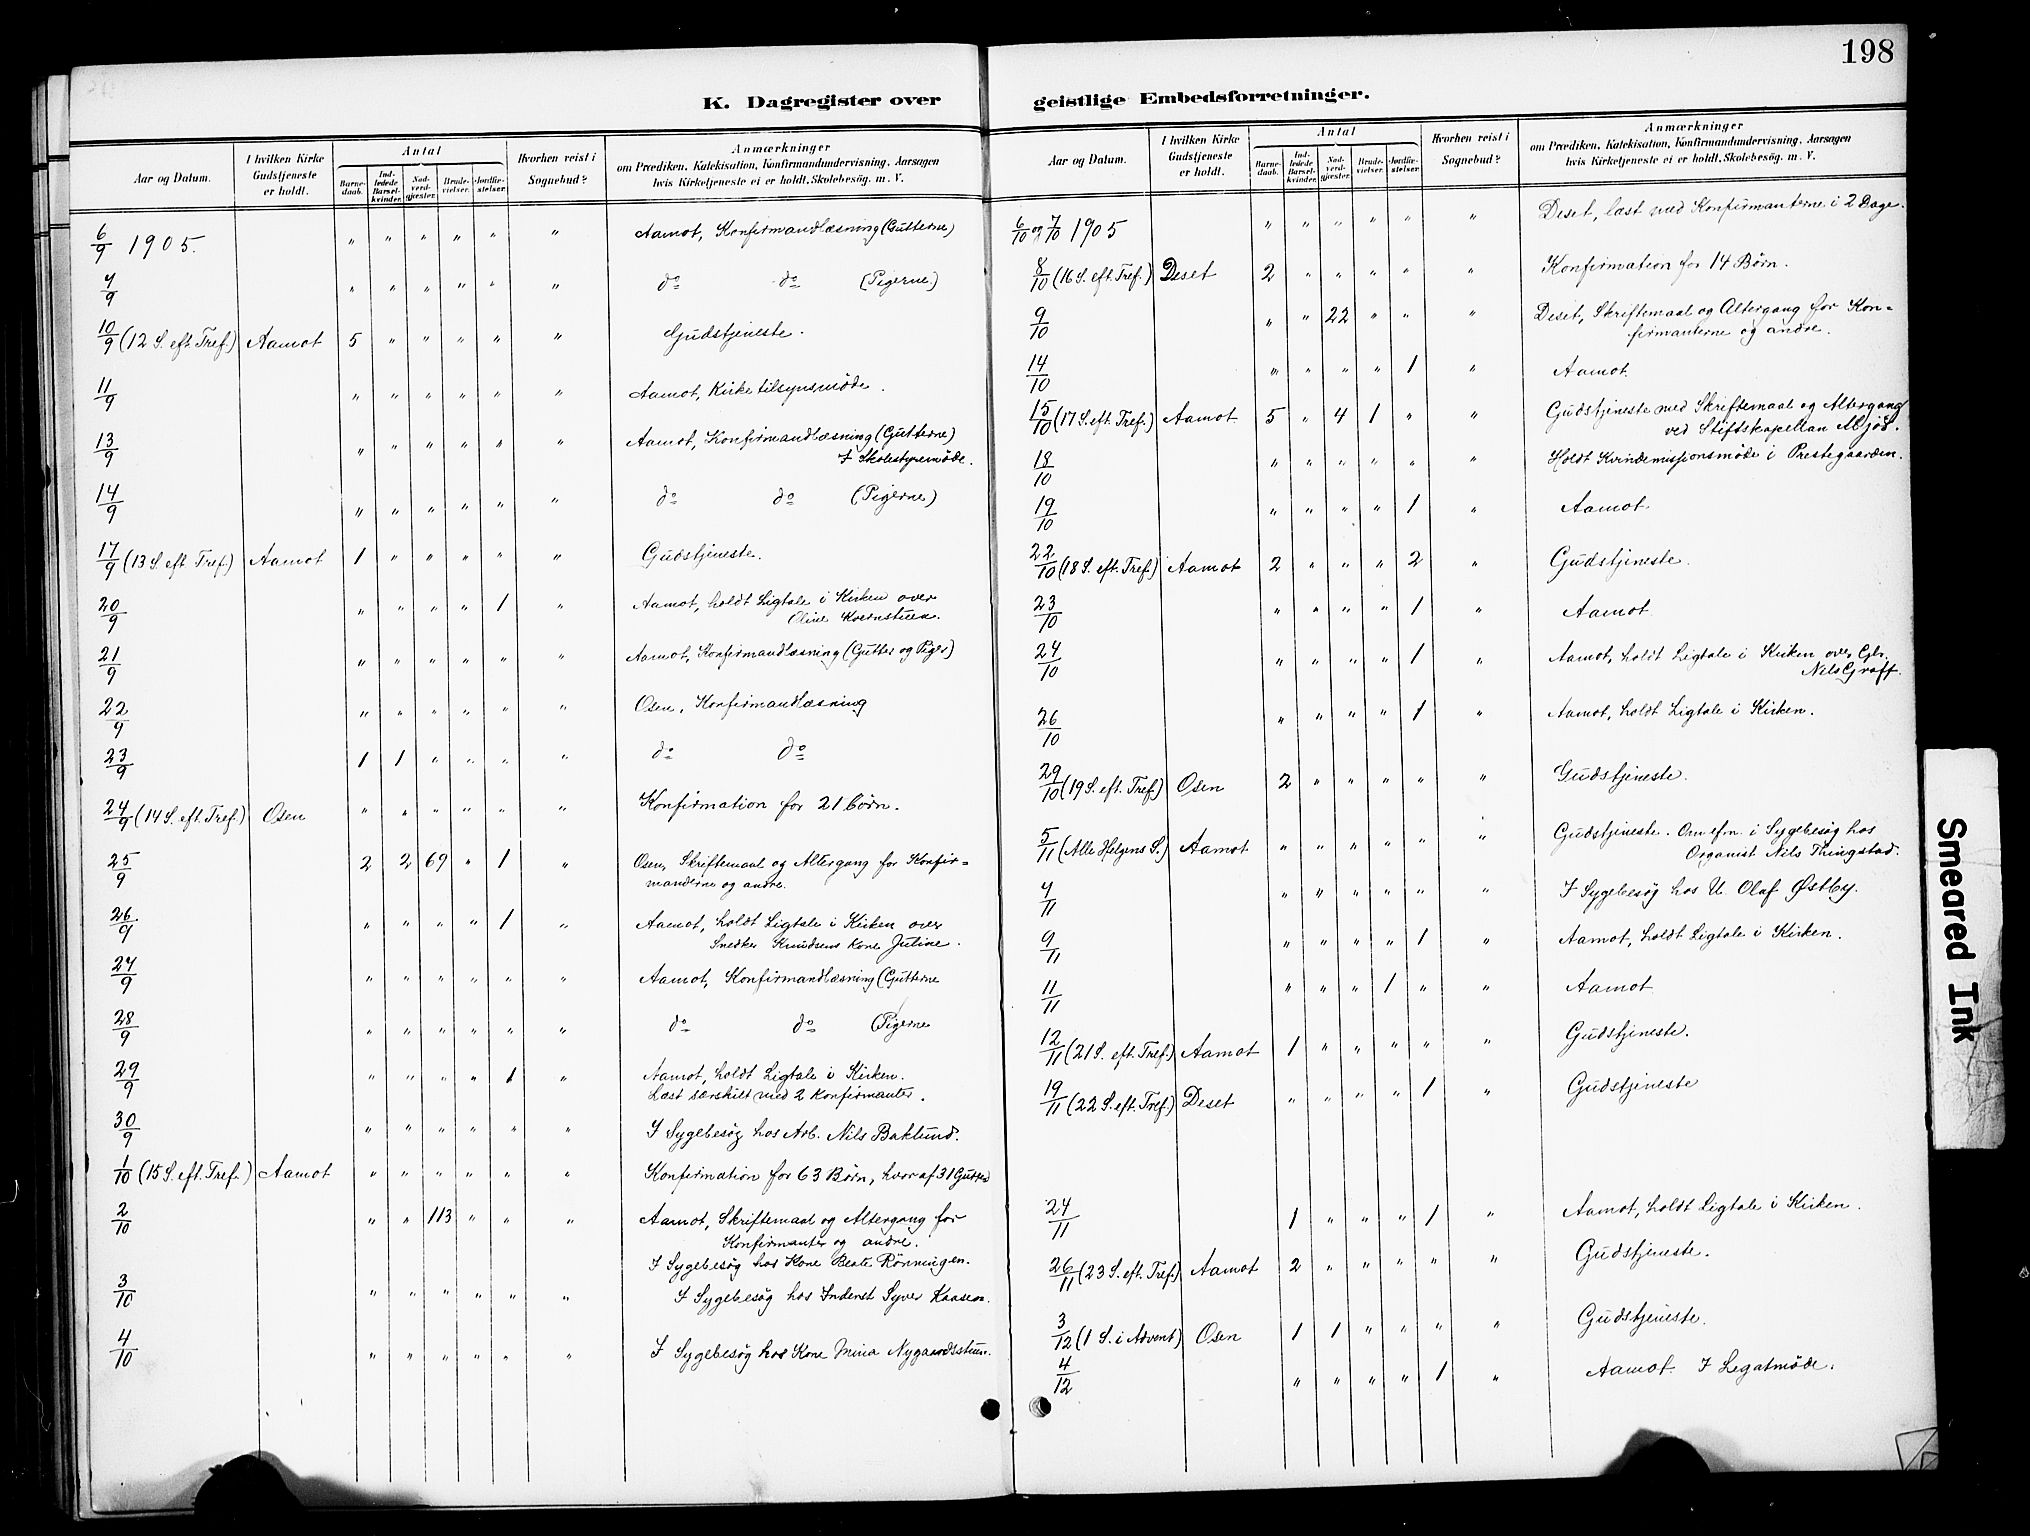 198
K. Dagregister over geistlige Embedsforretninger.
Aar og Datum. | I hvilken Kirke Gudstjeneste er holdt. | Antal | Barnedaab. | Indledede Barselkvinder. | Nadverdgjæster. | Brudevielser. | Jordfæstelser. | Hvorhen reist i Sognebud? | Anmærkninger om Prædiken, Katekisation, Konfirmandundervisning, Aarsagen hvis Kirketjeneste ei er holdt, Skolebesøg. m. V.
6/9 1905. | " | " | " | " | " | " | Aamot, Konfirmandlæsning (Gutterne)
7/9 | " | " | " | " | " | " | do do (Pigerne)
10/9 (12 S. eft. Tref.) | Aamot | 5 | " | " | " | " | " | Gudstjeneste.
11/9 | " | " | " | " | " | " | Aamot, Kirketilsynsmøde.
13/9 | " | " | " | " | " | " | Aamot, Konfirmandlæsning (Gutterne)
I Skolestyremøde.
14/9 | " | " | " | " | " | " | do do (Pigerne)
17/9 (13 S. eft. Tref.) | Aamot | 1 | " | " | " | " | " | Gudstjeneste.
20/9 | " | " | " | " | 1 | " | Aamot, holdt Ligtale i Kirken over
Oline Kvernstuen.
21/9 | " | " | " | " | " | " | Aamot, Konfirmandlæsning (Gutter og Piger)
22/9 | " | " | " | " | " | " | Osen, Konfirmandlæsning
23/9 | 1 | 1 | " | " | " | " | do do
24/9 (14 S. eft. Tref.) | Osen | " | " | " | " | " | " | Konfirmation for 21 børn.
25/9 | 2 | 2 | 69 | " | 1 | " | Osen, Skriftemaal og Altergang for Konfir=
manderne og andre.
26/9 | " | " | " | " | 1 | " | Aamot, holdt Ligtale i Kirken over
Snedker Knudsens Kone Juline.
27/9 | " | " | " | " | " | " | Aamot, Konfirmandlæsning (Gutterne
28/9 | " | " | " | " | " | " | do do (Pigerne
29/9 | " | " | " | " | 1 | " | Aamot, holdt Ligtale i Kirken.
Læst særskilt med 2 Konfirmanter.
30/9 | " | " | " | " | " | " | I Sygebesøg hos Arb. Nils Baklund.
1/10 (15 S. eft. Tref.) | Aamot | " | " | " | " | " | " | Konfirmation for 63 Børn, hvoraf 31 Gutter
2/10 | " | " | 113 | " | " | " | Aamot, Skriftemaal og Altergang for
Konfirmanter og andre.
I Sygebesøg hos Kone Beate Rønningen.
3/10 | " | " | " | " | " | " | I Sygebesøg hos Inderst Syver Kaasen.
4/10 | " | " | " | " | " | " | I Sygebesøg hos Kone Mina Nygaardsstuen.
Aar og Datum. | I hvilken Kirke Gudstjeneste er holdt. | Antal | Barnedaab. | Indledede Barselkvinder. | Nadverdgjæster. | Brudevielser. | Jordfæstelser. | Hvorhen reist i Sognebud? | Anmærkninger om Prædiken, Katekisation, Konfirmandundervisning, Aarsagen hvis Kirketjeneste ei er holdt, Skolebesøg. m. V.
6/10 og 7/10 1905 | " | " | " | " | " | " | Deset, læst med Konfirmanterne i 2 Dage.
8/10 (16 S. eft. Tref.) | Deset | 2 | " | " | " | " | " | Konfirmation for 14 Børn.
9/10 | " | " | 22 | " | " | " | Deset, Skriftemaal og Altergang for Kon=
firmanterne og andre.
14/10 | " | " | " | " | 1 | " | Aamot.
15/10 (17 S. eft. Tref.) | Aamot | 5 | " | 4 | 1 | " | " | Gudstjeneste med Skriftemaal og Altergang
ved Stiftskapellan Mjøs.
18/10 | " | " | " | " | " | " | Holdt Kvindemissionsmøde i Prestegaarden.
19/10 | " | " | " | " | 1 | " | Aamot.
22/10 (18 S. eft. Tref.) | Aamot | 2 | " | " | " | 2 | " | Gudstjeneste.
23/10 | " | " | " | " | 1 | " | Aamot
24/10 | " | " | " | " | 1 | " | Aamot, holdt Ligtale i Kirken over Gbr.
Nils Græff.
26/10 | " | " | " | " | 1 | " | Aamot, holdt Ligtale i Kirken.
29/10 (19 S. eft. Tref.) | Osen | 2 | " | " | " | " | " | Gudstjeneste.
5/11 (Alle Helgens S.) | Aamot | " | " | " | " | " | " | Gudstjeneste. Om efm. i Sygebesøg hos
Organist Nils Thingstad.
7/11 | " | " | " | " | " | " | I Sygebesøg hos U. Olaf Østby.
9/11 | " | " | " | " | 1 | " | Aamot, holdt Ligtale i Kirken.
11/11 | " | " | " | 1 | " | " | Aamot
12/11 (21 S. eft. Tref.) | Aamot | 1 | " | " | " | " | " | Gudstjeneste.
19/11 (22 S. eft. Tref.) | Deset | " | " | " | " | 1 | " | Gudstjeneste
24/11 | 1 | " | " | " | 1 | " | Aamot, holdt Ligtale i Kirken.
26/11 (23 S. eft. Tref.) | Aamot | 2 | " | " | " | " | " | Gudstjeneste.
3/12 (1 S. i Advent) | Osen | 1 | 1 | " | " | " | " | Gudstjeneste.
4/12 | " | " | " | " | 1 | " | Aamot. I Legatmøde.
Smeared Ink